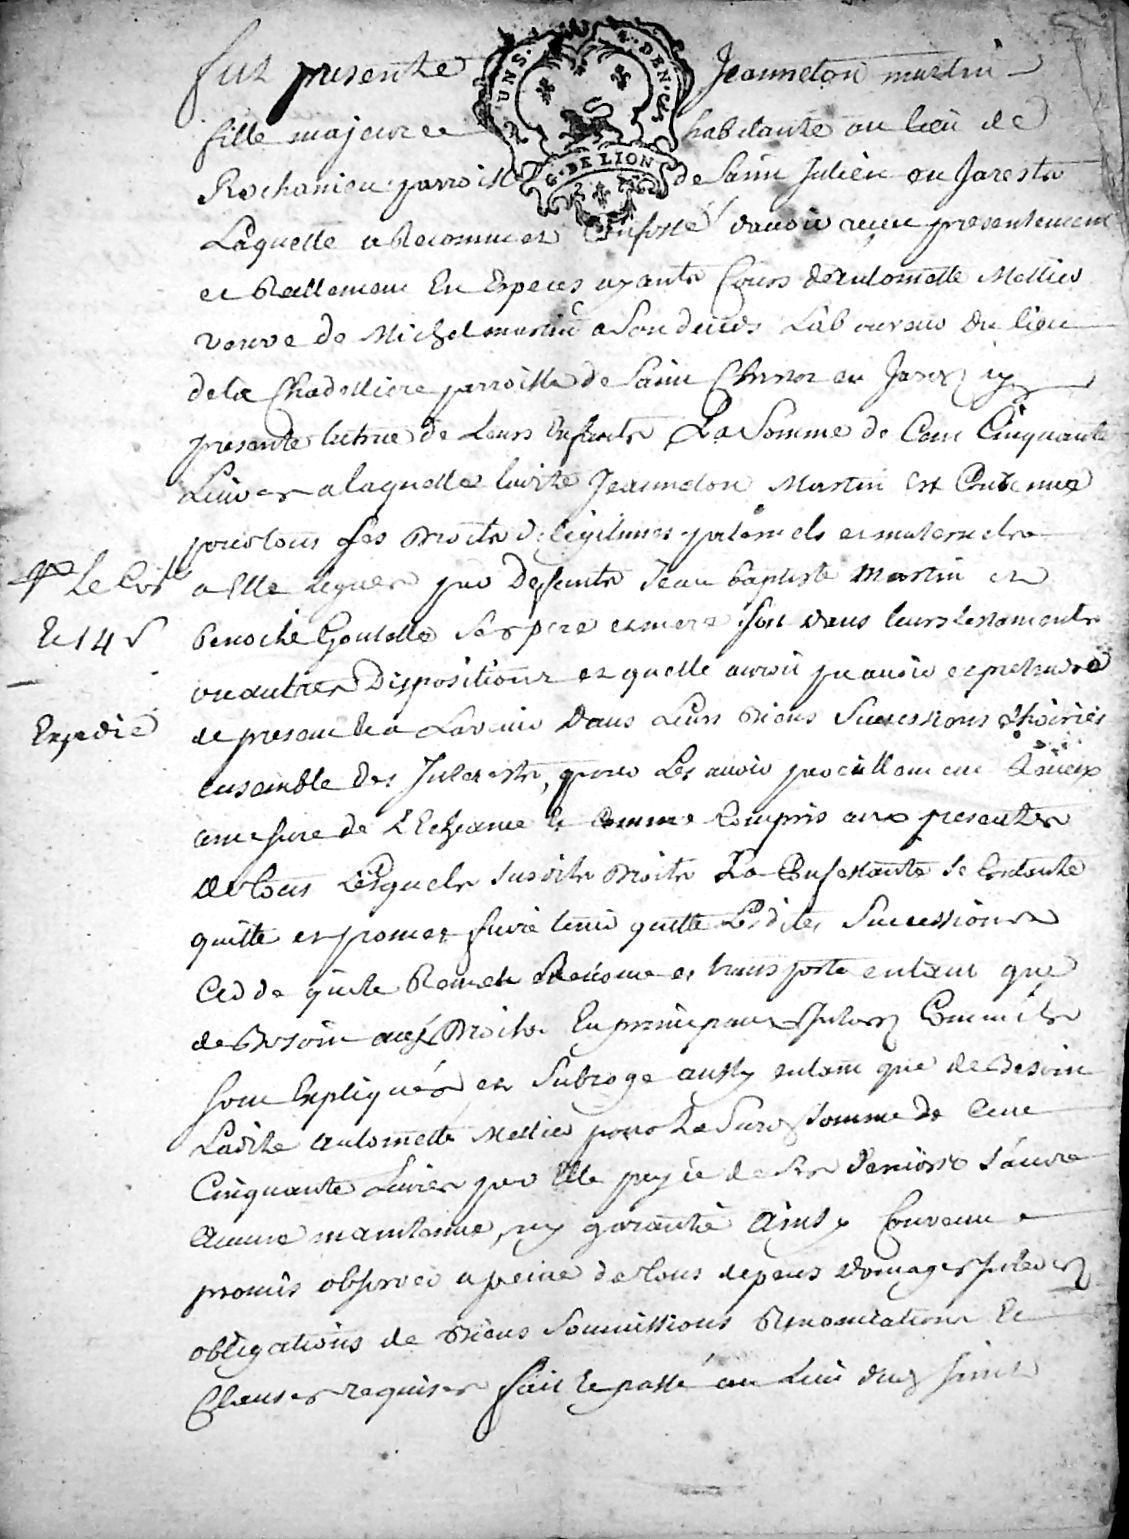 fut presente Jeanneton martin
UNS. 4. DEN. C/S
G. DE LION
fille majeure habitante au lieu de
Rochanieu parroisse de Saint Julien en Jarestz
Laquelle a Reconnu et Confessé d'avoir reçeu presentement
et Reellement En Especes ayants Cours d'antoinette Mellier
veuve de Michel martin a son deces Laboureur du lieu
de la Chadelliere parroisse de Saint Christoz en Jarez icy
presente tutrice de Leurs Enfants La Somme de Cent Cinquante
Livres a laquelle ladite Jeanneton Martin Est Convenue
pour tous ses Droits de legitimes paternels et maternels
a Elle leguer par Deffunts Jean baptiste Martin et
benoite Goutelle Ses pere et mere soit dans leurs testaments
ou autres Dispositions et quelle auroit pu avoir et pretendre
de present & a L'avenir Dans Leurs Biens Successions & hoiries
ensemble des Interests, pour Les avoir
a mesure de L'Echeance & Comme Compris aux presentes
de tous Lesquels susdits Droits La Confessante Se Contente
quitte et promet faire tenir quitte Lesdites Successions
Cedde quitte Remet Renonce et transporte entant que
de Besoin Droits En principaux & Interez Comme ils
sont Expliqués et Subroge aussy entant que de Besoin
Ladite antoinette Mellier pour La Surd. somme de Cent
Cinquante Livres par Elle payée de Ses Deniers Sauve
Aucune maintenue, ny garantie Ainsy Convenu
promis observer a peine de tous depens Domages Interez
obligations de Biens Soumissions Renonciations &
Clauses requises fait & passé au Lieu dud. saint
le 14 s
Expedié